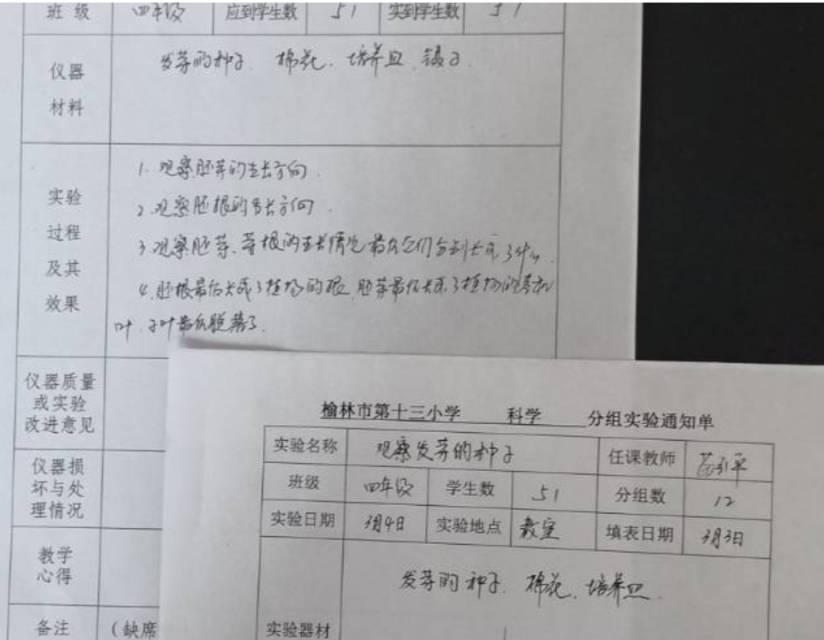 班级 四年级 应到学生数 51 实到学生数 51
仪器材料 发芽的种子、棉花、培养皿、镊子
实验过程及其效果
1. 观察胚芽的生长方向.
2. 观察胚根的生长方向
3. 观察胚芽、胚根的生长情况最后它们分别长成了什么.
4. 胚根最后长成了植物的根, 胚芽最后长成了植物的茎和
叶. 子叶最后脱落了.
仪器质量或实验改进意见
仪器损坏与处理情况
教学心得
备注 (缺席
榆林市第十三小学 科学 分组实验通知单
实验名称 观察发芽的种子 任课教师
班级 四年级 学生数 51 分组数 12
实验日期 3月4日 实验地点 教室 填表日期 3月3日
实验器材 发芽的种子、棉花、培养皿